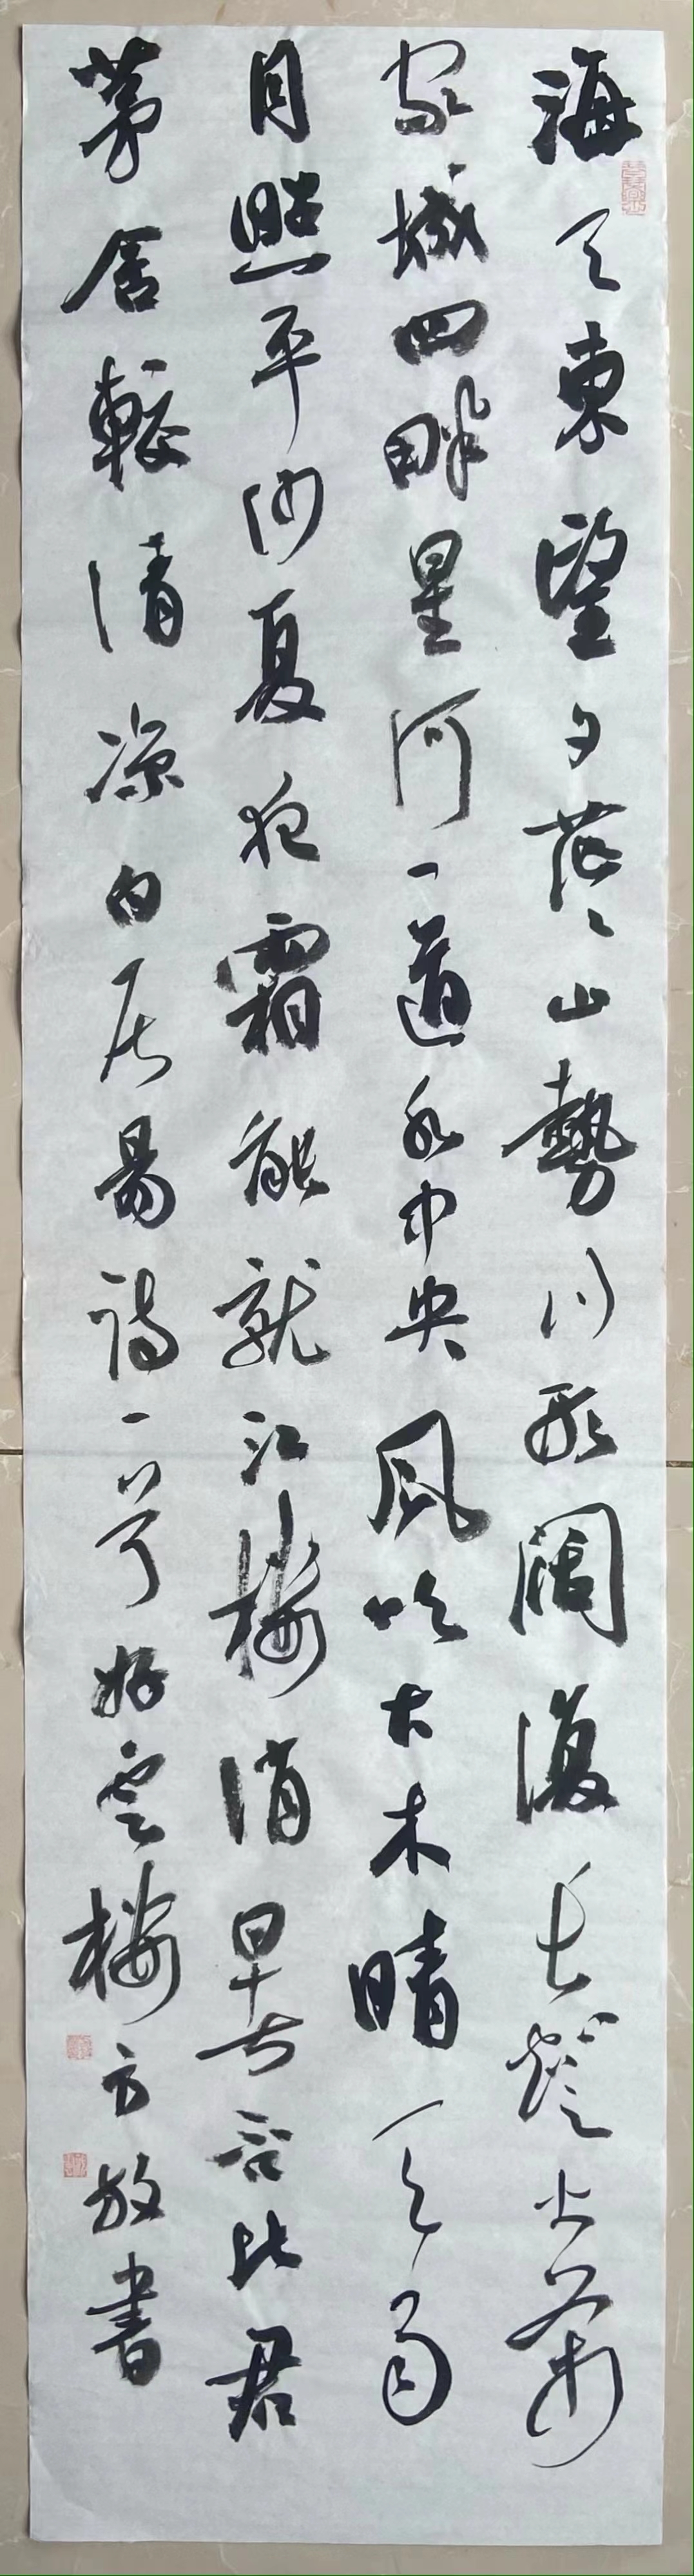 海天東望夕茫〻山勢川形闊復長燈火萬
家城四畔星河一道水中央風吹古木晴天雨
月照平沙夏夜霜能就江樓消暑否比君
茅舍較清涼白居易詩一首好雲樓方放書